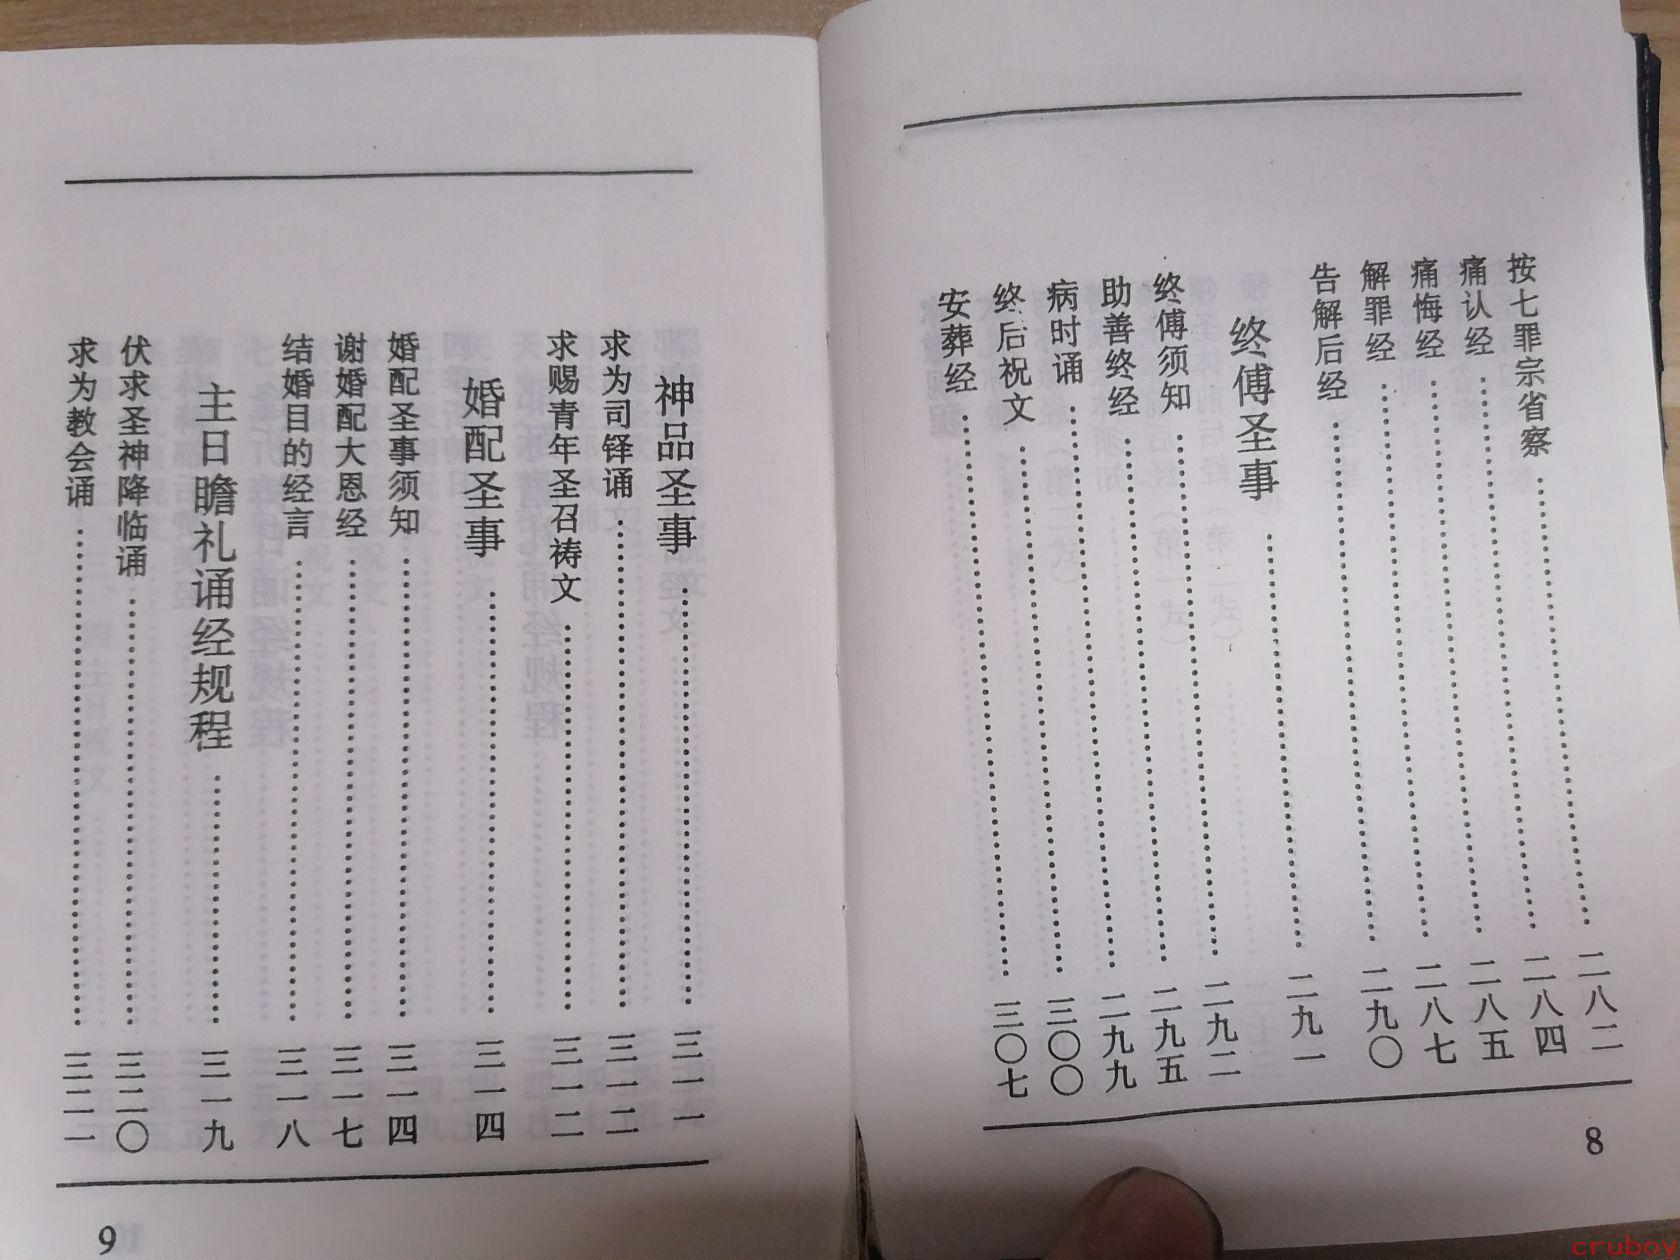 按七罪宗省察……二八二
痛认经……二八四
痛悔经……二八五
解罪经……二八七
告解后经……二九〇
终傅圣事……二九一
终傅须知……二九二
助善终经……二九五
病时诵……二九九
终后祝文……三〇〇
安葬经……三〇七
8
神品圣事……三一一
求为司铎诵……三一二
求赐青年圣召祷文……三一二
婚配圣事……三一四
婚配圣事须知……三一四
谢婚配大恩经……三一七
结婚目的经言……三一八
主日瞻礼诵经规程……三一九
伏求圣神降临诵……三二〇
求为教会诵……三二一
9
cruboy